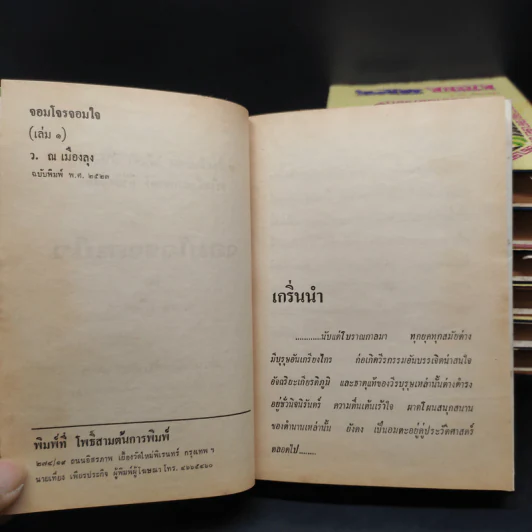 จอมโจรจอมใจ
(เล่ม ๑)
ว. ณ เมืองลุง
ฉบับพิมพ์ พ.ศ. ๒๕๒๓
พิมพ์ที่ โพธิ์สามต้นการพิมพ์
๒๗๔/๑๑ ถนนอิสรภาพ เยื้องวัดใหม่พิเรนทร์ กรุงเทพ ฯ
นายเที่ยง เพียรประกิจ ผู้พิมพ์ผู้โฆษณา โทร.
เกริ่นนำ
............นับแต่โบราณกาลมา ทุกยุคทุกสมัยต่าง
มีบุรุษอันเกรียงไกร ก่อเกิดวีรกรรมอันบรรเจิดน่าสนใจ
อัจฉริยะเกียรติภูมิ และธาตุแท้ของวีรบุรุษเหล่านั้นต่างดำรง
อยู่ชั่วนิจนิรันดร์ ความตื่นเต้นเร้าใจ ผาดโผนสนุกสนาน
ของตำนานเหล่านั้น ยังคง เป็นอมตะอยู่คู่ประวัติศาสตร์
ตลอดไป........